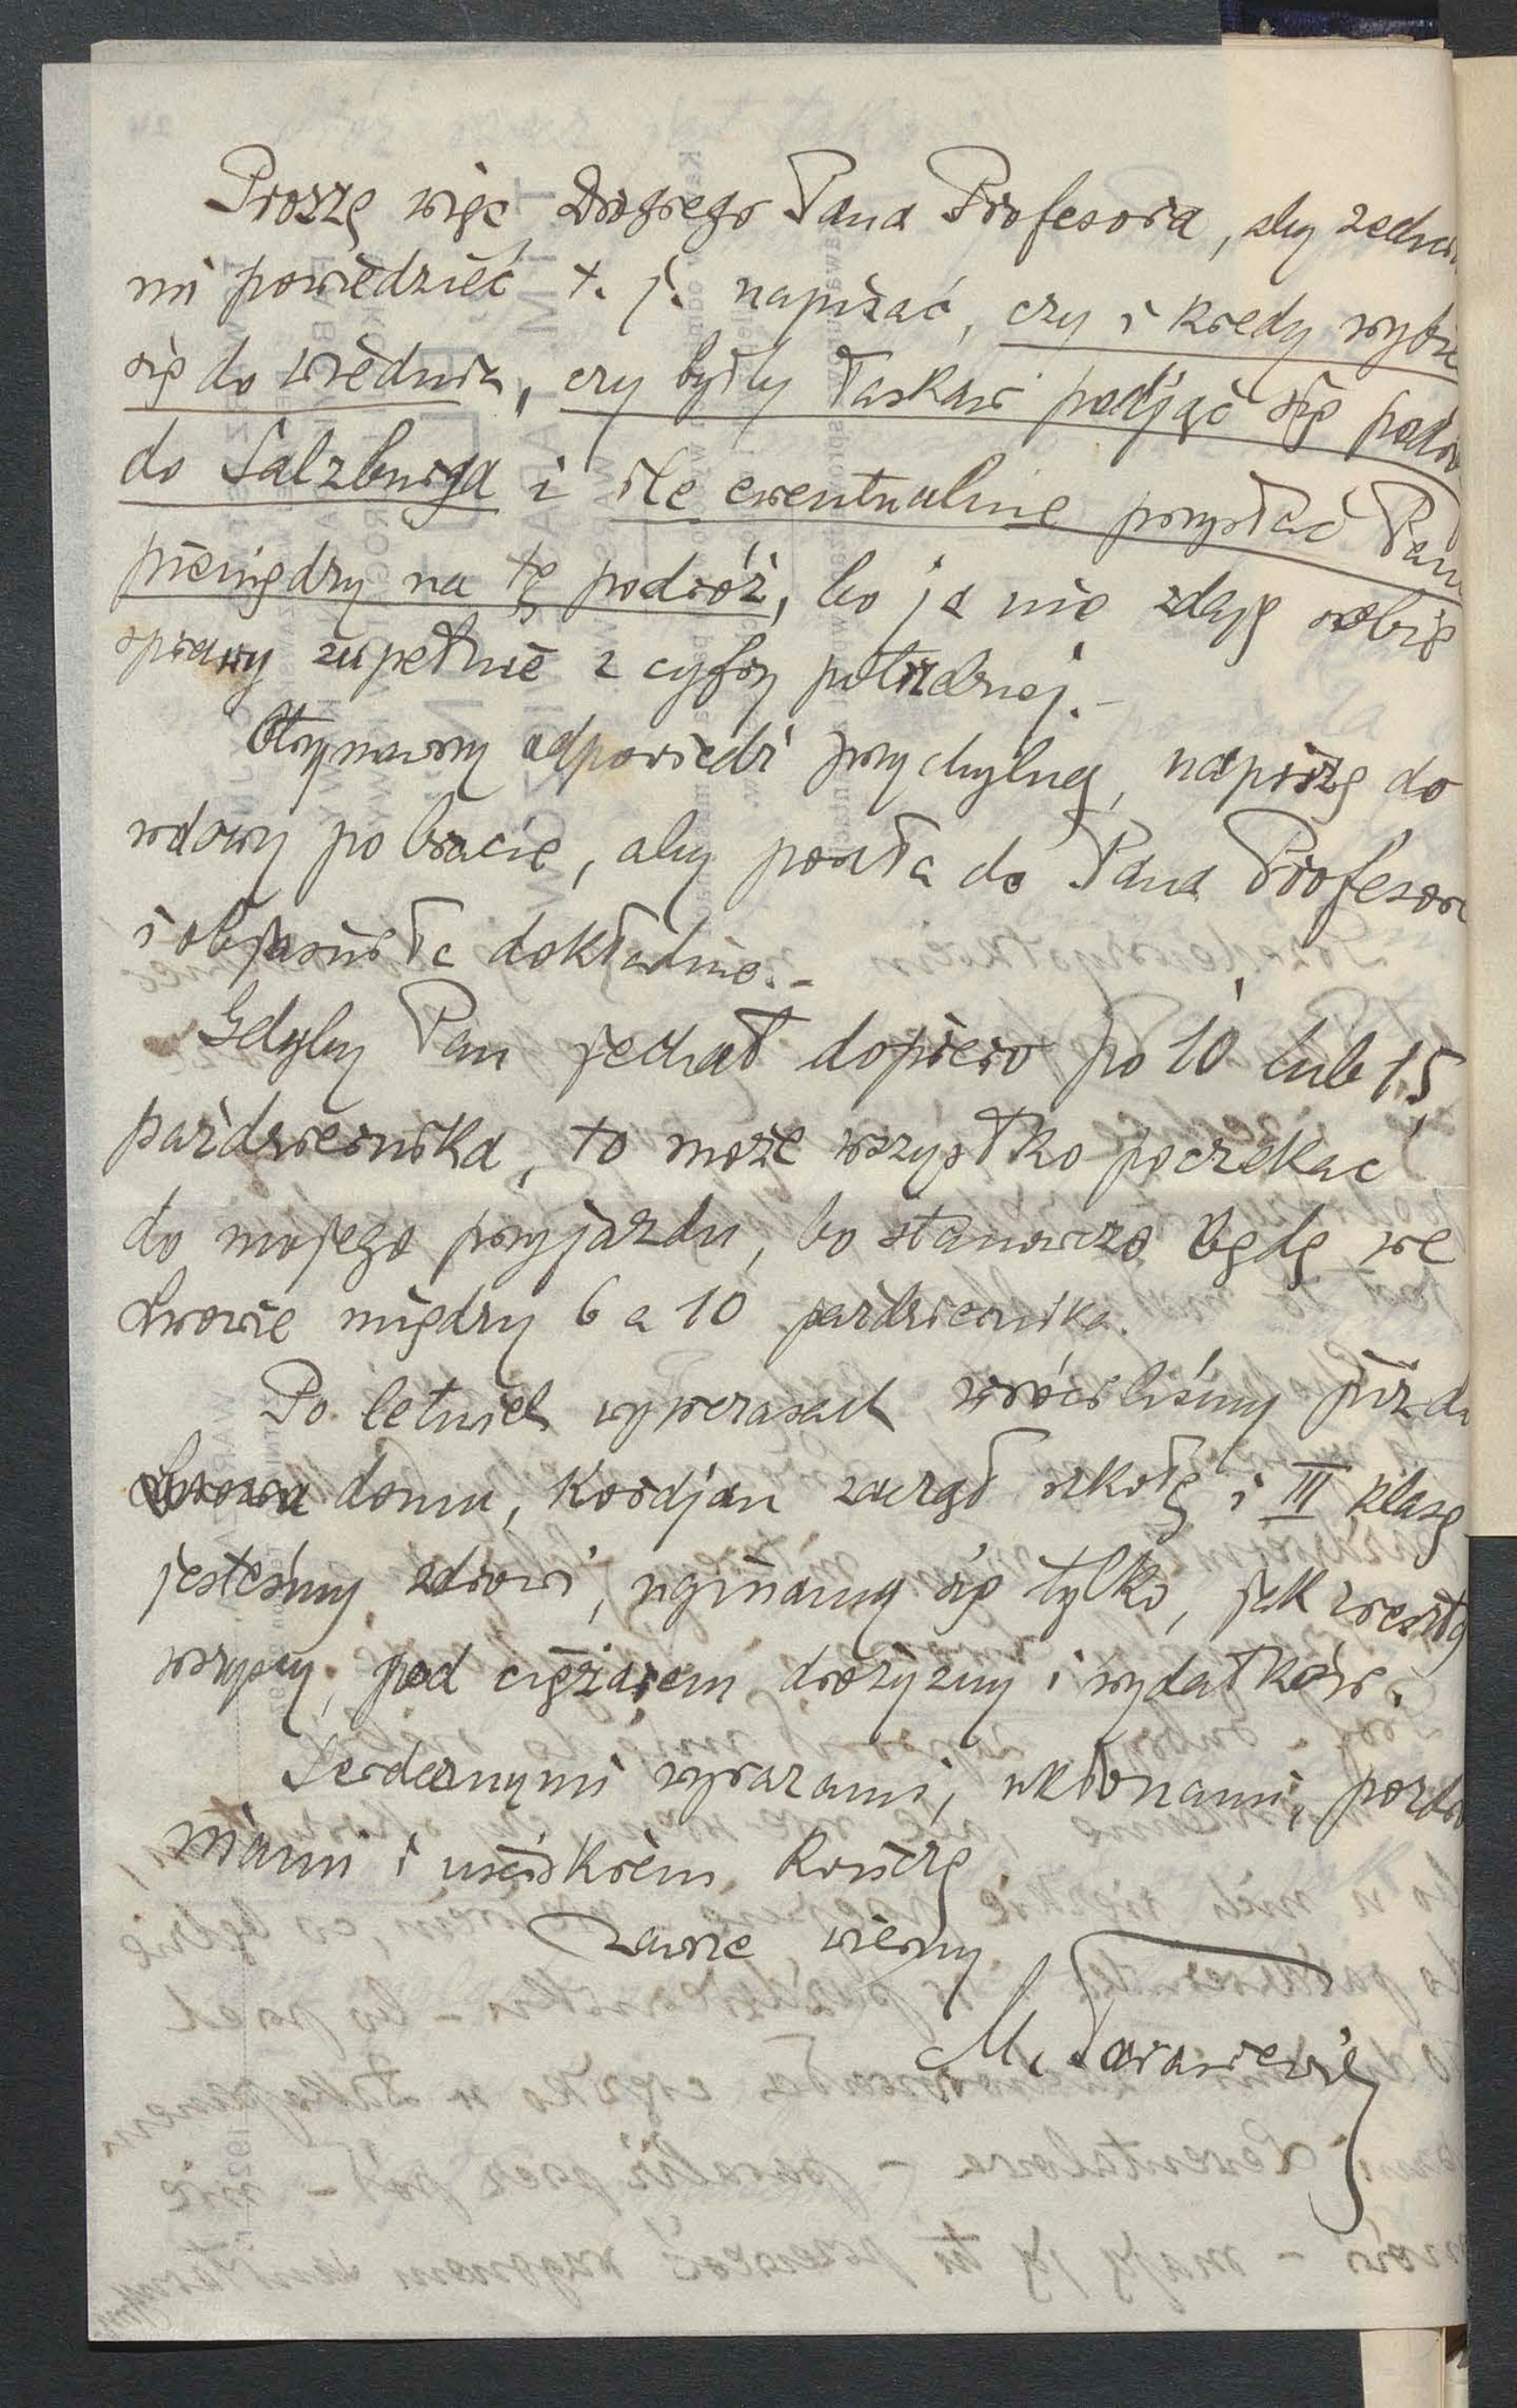 Proszę więc Drogiego Pana Profesora, aby zechciał
mi powiedzieć t. j. napisać, czy i kiedy wybie
się do Wiednia, czy byłby łaskaw podjąć się podró
do Salzburga i ile ewentualnie przysłać Panu
pieniędzy na tę podróż, bo ja nie zdaję sobie
sprawy zupełnie z cyfry potrzebnej.-
Otrzymawszy odpowiedź przychylną, napiszę do
wdowy po bracie, aby poszła do Pana Profesora
i objaśniła dokładnie.-
Gdyby Pan jechał dopiero po 10 lub 15
października, to może wszystko poczekać
do mojego przyjazdu, bo stanowczo będę we
Lwowie między 6 a 10 października.
Po letnich wywczasach wróciliśmy już do
domu, Kordjan zaczął szkołę i III klasę
jesteśmy zdrowi, uginamy się tylko, jak zresztą
wszyscy, pod ciężarem drożyzny i wydatków.
Serdecznymi wyrazami, ukłonami, pozdro
mianmi i uściskiem kończę
zawsze wierny
M. Tarasiewicz